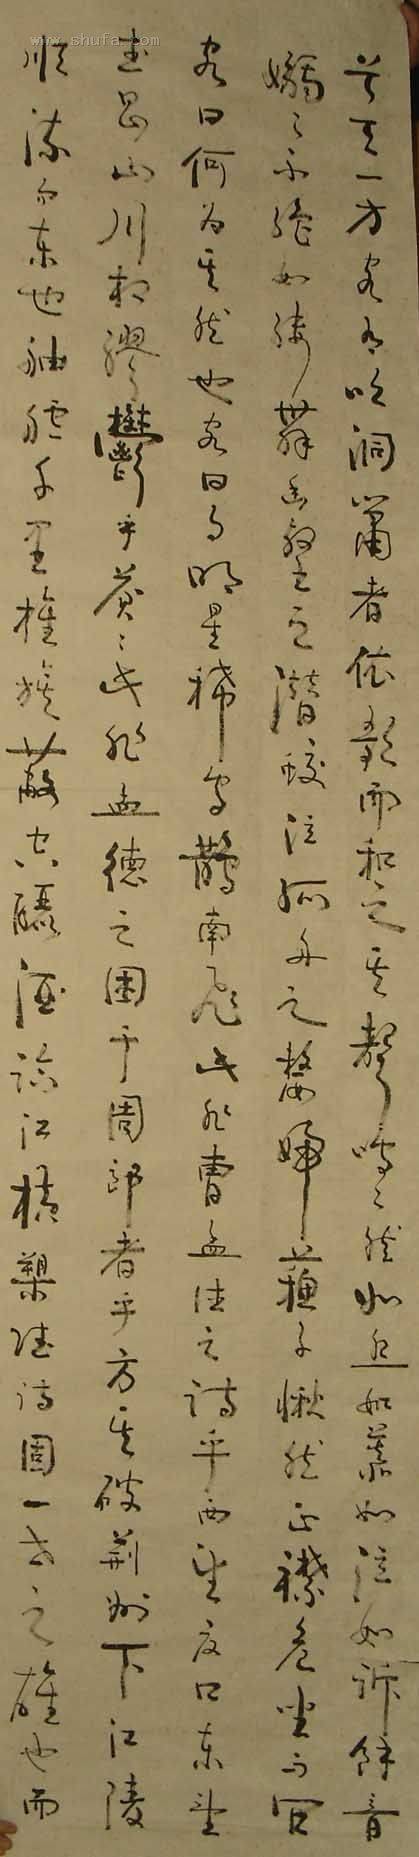 www.shufa.com
兮天一方客有吹洞簫者依歌而和之其聲嗚嗚然如怨如慕如泣如訴餘音
嫋嫋不絕如縷舞幽壑之潛蛟泣孤舟之嫠婦蘇子愀然正襟危坐而問
客曰何為其然也客曰月明星稀烏鵲南飛此非曹孟德之詩乎西望夏口東望
武昌山川相繆鬱乎蒼蒼此非孟德之困于周郎者乎方其破荊州下江陵
順流而東也舳艫千里旌旗蔽空釃酒臨江橫槊賦詩固一世之雄也而